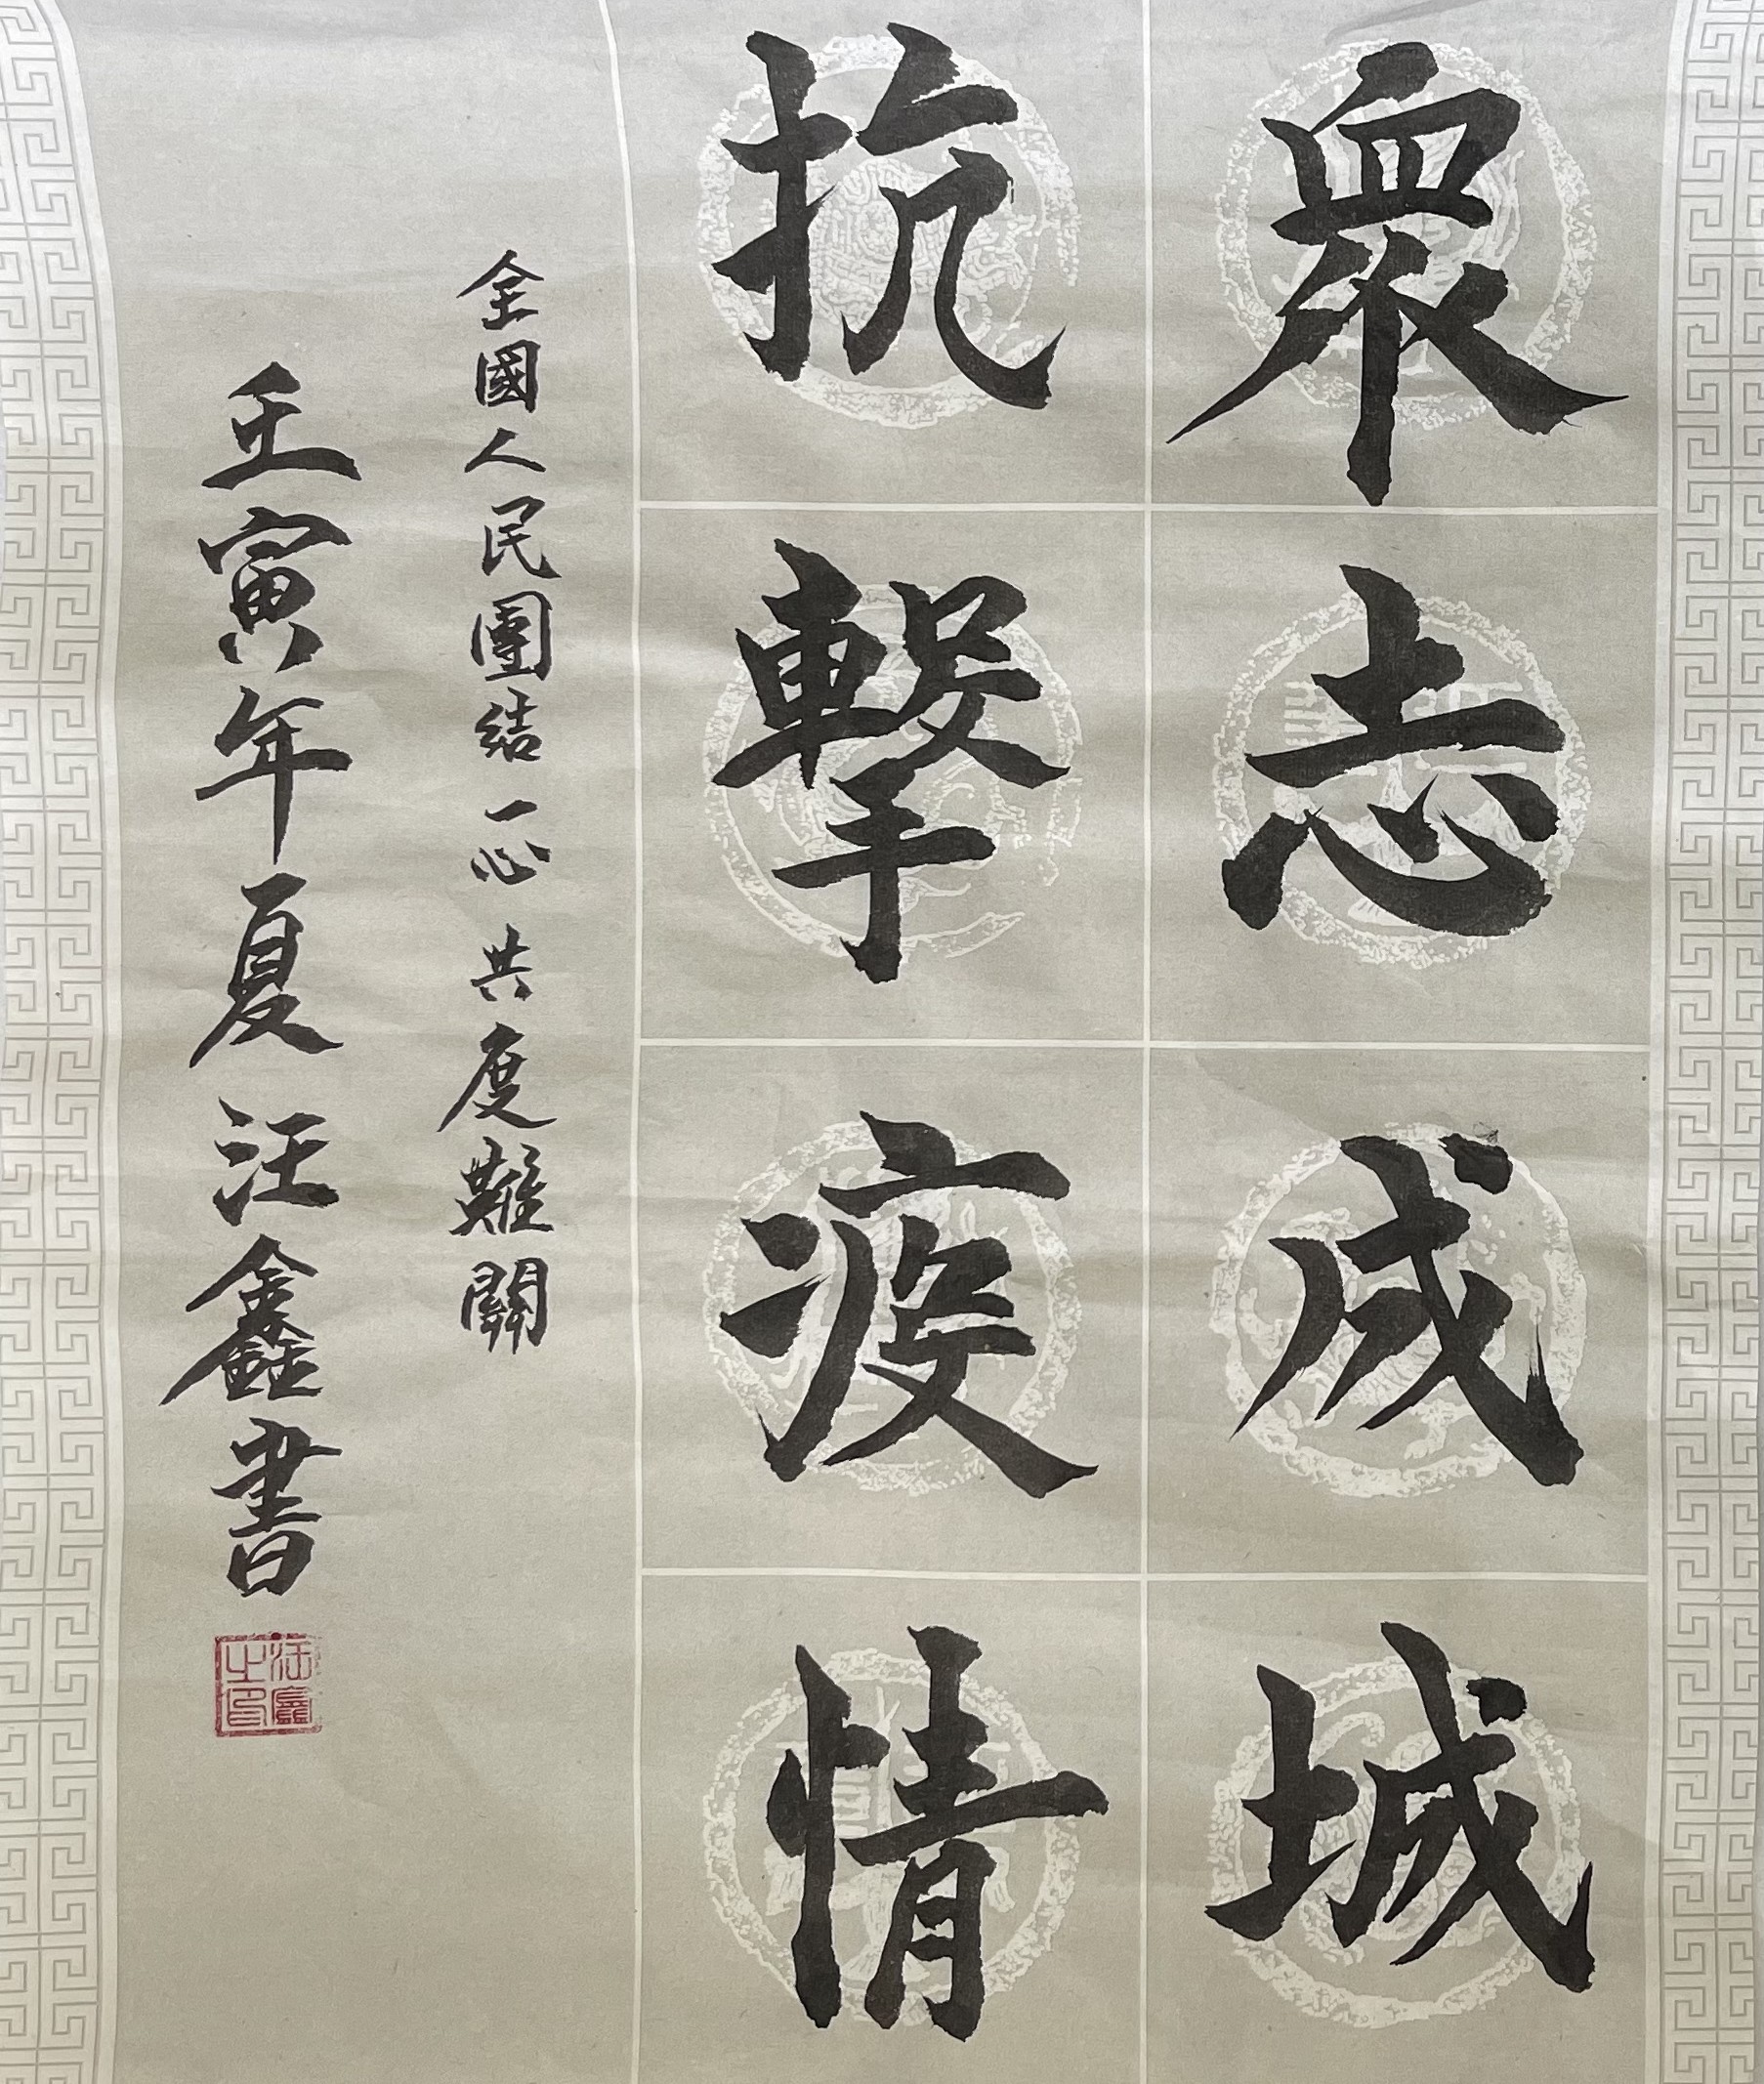 眾志成城
抗擊疫情
全國人民團結一心共度難關
壬寅年夏汪鑫書
汪鑫之印